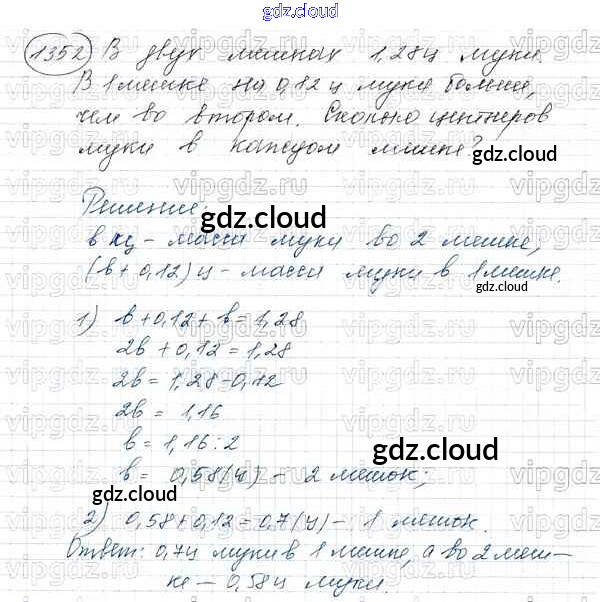 gdz.cloud
1352) В двух мешках 1,28ц муки.
В 1 мешке на 0,12 ц муки больше,
чем во втором. Сколько центнеров
муки в каждом мешке?
gdz.cloud
Решение:
gdz.cloud
в ц - масса муки во 2 мешке,
(в + 0,12) ц - масса муки в 1 мешке.
gdz.cloud
1) в + 0,12 + в = 1,28
2в + 0,12 = 1,28
2в = 1,28 - 0,12
2в = 1,16
в = 1,16 : 2
gdz.cloud
в = 0,58 (ц) - 2 мешок;
gdz.cloud
2) 0,58 + 0,12 = 0,7 (ц) - 1 мешок.
Ответ: 0,7ц муки в 1 мешке, а во 2 меш-
ке - 0,58ц муки.